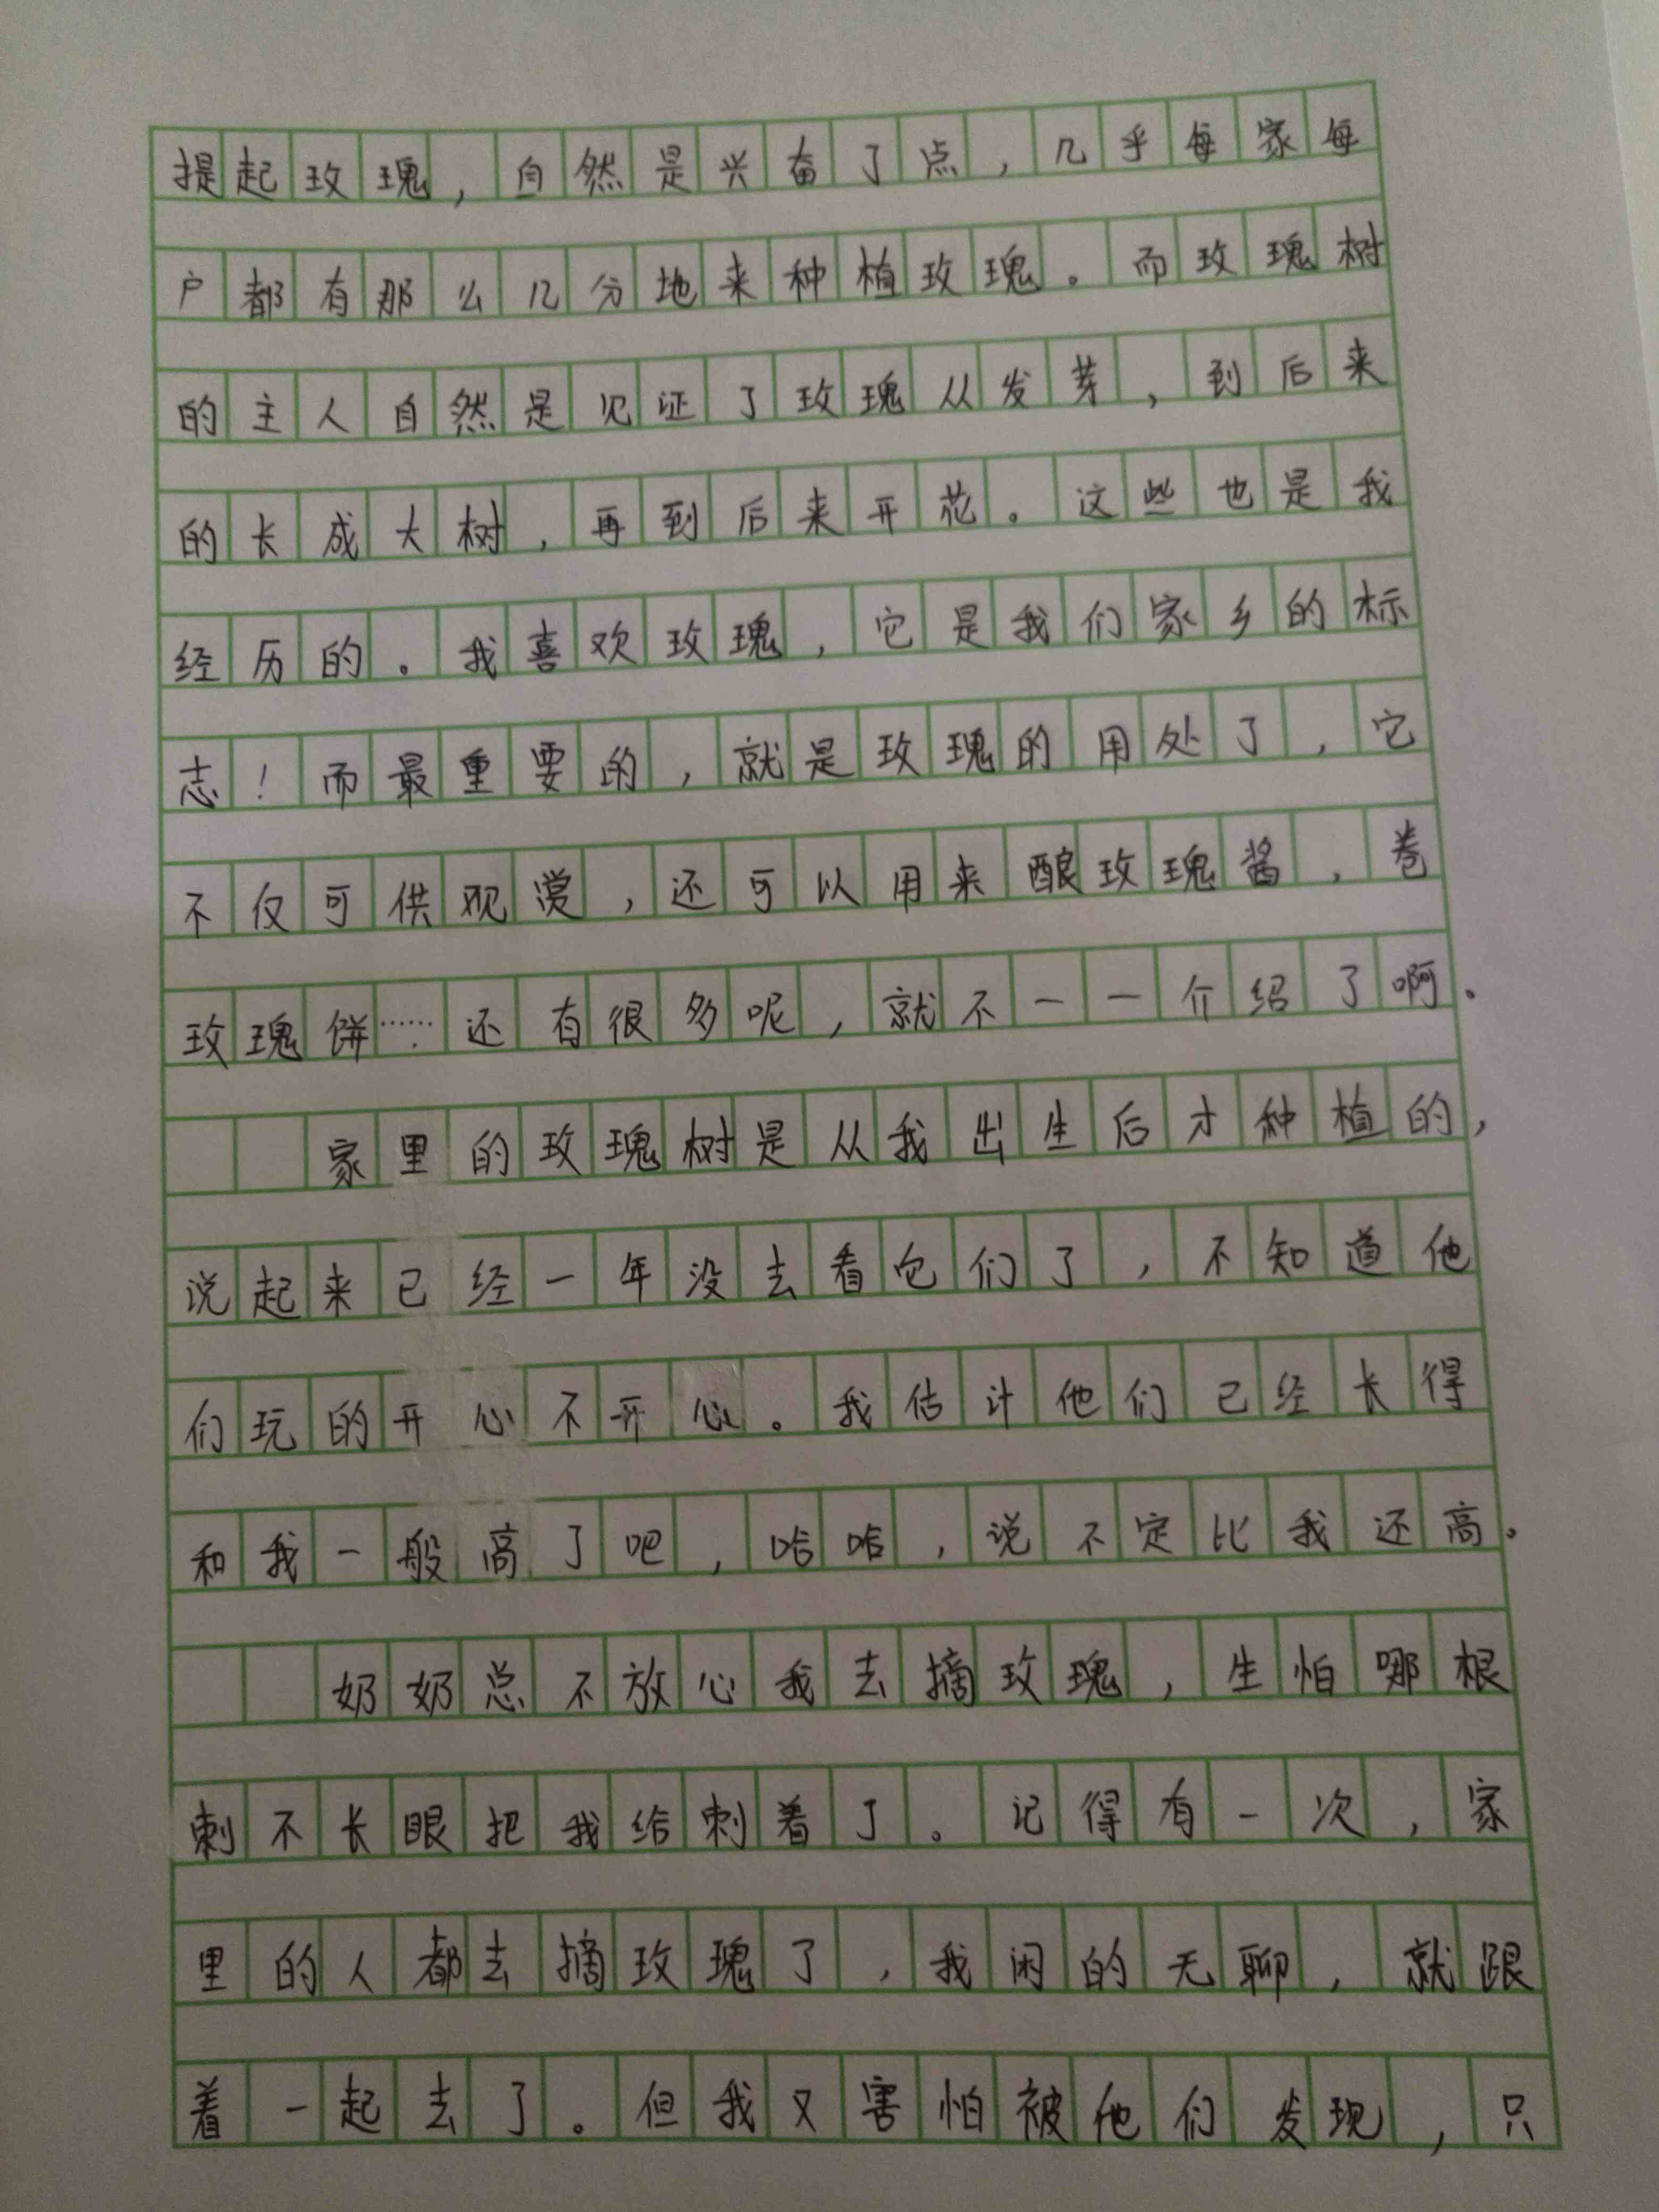 提起玫瑰，自然是兴奋了点，几乎每家每
户都有那么几分地来种植玫瑰。而玫瑰树
的主人自然是见证了玫瑰从发芽，到后来
的长成大树，再到后来开花。这些也是我
经历的。我喜欢玫瑰，它是我们家乡的标
志！而最重要的，就是玫瑰的用处了，它
不仅可供观赏，还可以用来酿玫瑰酱，卷
玫瑰饼……还有很多呢，就不一一介绍了啊。
家里的玫瑰树是从我出生后才种植的，
说起来已经一年没去看它们了，不知道他
们玩的开心不开心。我估计他们已经长得
和我一般高了吧，哈哈，说不定比我还高。
奶奶总不放心我去摘玫瑰，生怕哪根
刺不长眼把我给刺着了。记得有一次，家
里的人都去摘玫瑰了，我闲的无聊，就跟
着一起去了。但我又害怕被他们发现，只